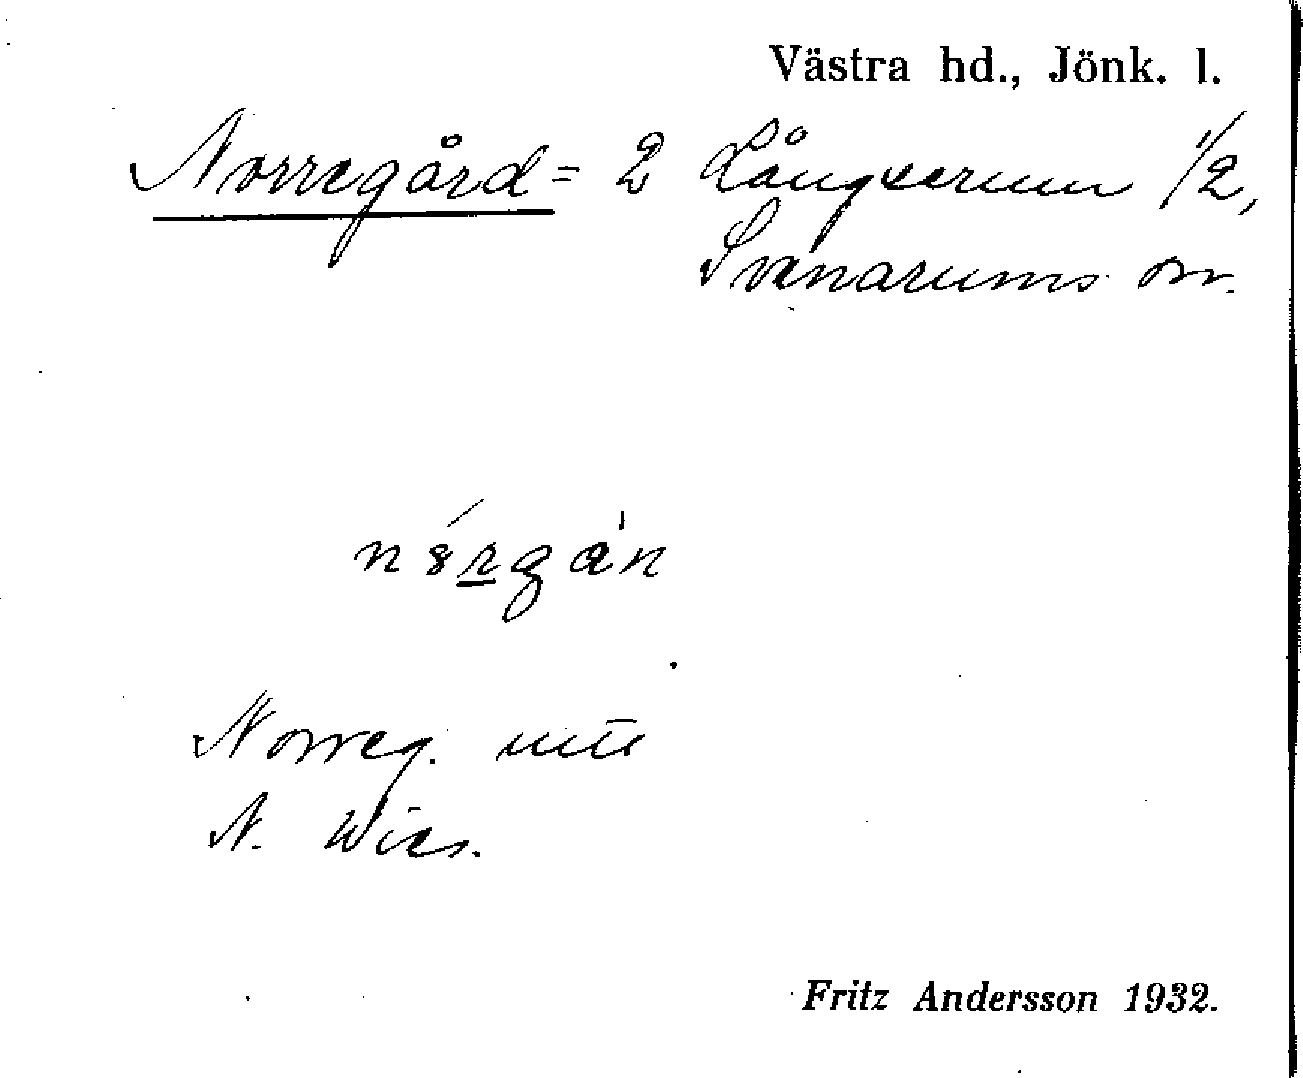 Västra hd., Jönk. l.
Norregård = 2 Långserum 1/2,
Svenarums sn.
Norreg.
N.
Fritz Andersson 1932.